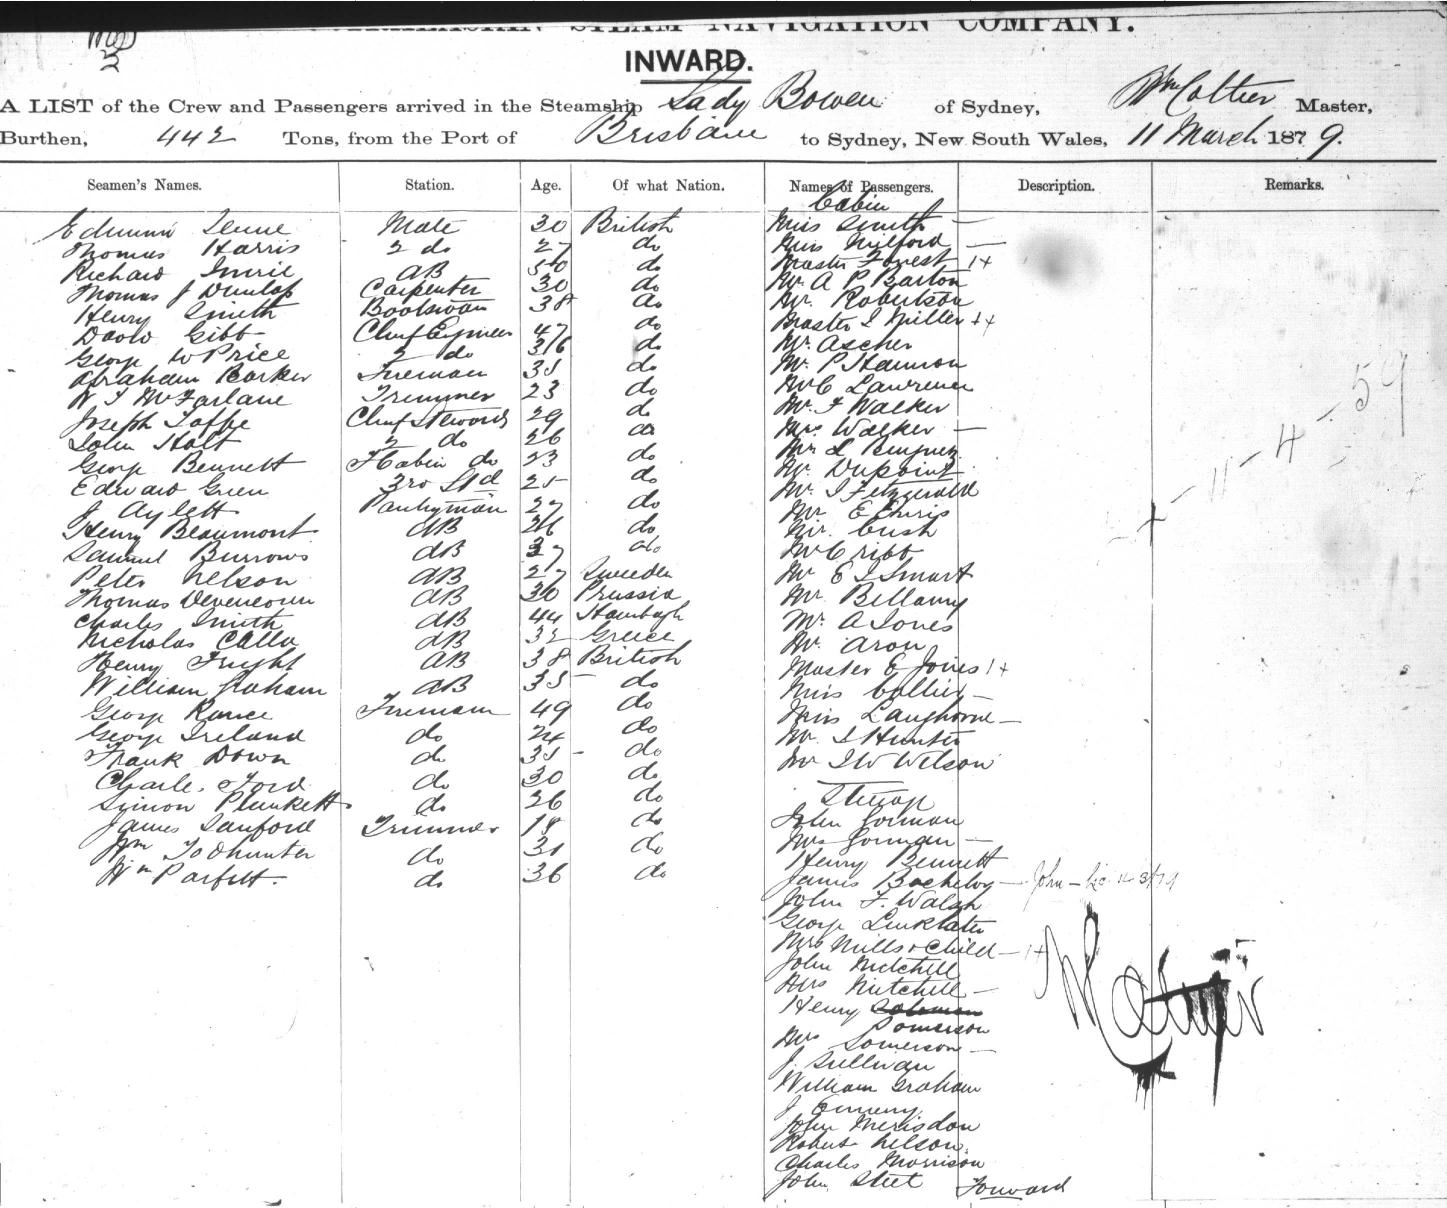 STEAM NAVIGATION COMPANY.
INWARD.
A LIST of the Crew and Passengers arrived in the Steamship Lady Bowen of Sydney, Wm Collier Master,
Burthen, 442 Tons, from the Port of Brisbane to Sydney, New South Wales, 11 March 1879.
Seamen's Names. Station. Age. Of what Nation. Names of Passengers. Description. Remarks.
Cabin
Edmund Mate 30 British Miss Smith —
Thomas Harris 2 do 27 do Miss Milford —
Richard Imrie AB 50 do Master Forest 1+
Thomas J Dunlop Carpenter 30 do Mr A P Barton
Henry Smith Boatswain 38 do Mr. Robertson
David Gibb Chief Engineer 47 do Master I Miller 1+
George W Price 2 do 36 do Mr. Ascher
Abraham Barker Fireman 35 do Mr. P Hannon
W J McFarlane Trimmer 23 do Mr C Lawrence
Joseph Taffe Chief Steward 29 do Mr. F Walker
John Holt 2 do 26 do Mrs Walker —
George Bennett F Cabin do 23 do Mr L
Edward Green 3rd Std 25 do Mr. Dupoint
J Aylett Pantryman 27 do Mr. I Fitzgerald
Henry Beaumont AB 26 do Mr E
Samuel Burrows AB 37 do Mr. Cush
Peter Nelson AB 27 Sweden Mr Cribb
Thomas AB 30 Prussia Mr E I Smart
Charles Smith AB 44 Hambugh Mr. Bellamy
Nicholas Calla AB 32 Greece Mr. A Jones
Henry Fright AB 38 British Mr. Aron
William Graham AB 35 do Master E Jones 1+
George Rance Fireman 49 do Miss Collier —
George Ireland do 24 do Miss Langhorne —
Frank Down do 35 do Mr. I Hunter
Charles Ford do 30 do Mr I W Wilson
Simon Plunkett do 26 do Steerage
James Sanford Trimmer 18 do John Gorman
Wm Todhunter do 31 do Mrs Gorman —
Wm Parfitt. do 36 do Henry Bennett
James Bachelor — John
John F. Walsh
George Linklater
Mrs Mills & Child — 1+
John Mitchell
Mrs Mitchell —
Henry Solomon
Somerson
Mrs Somerson —
J. Sullivan
William Graham
J Emmery
John Merisdon
Robert Nelson.
Charles Morrison
John Steet Forward
+ - 11 - 4 - 59